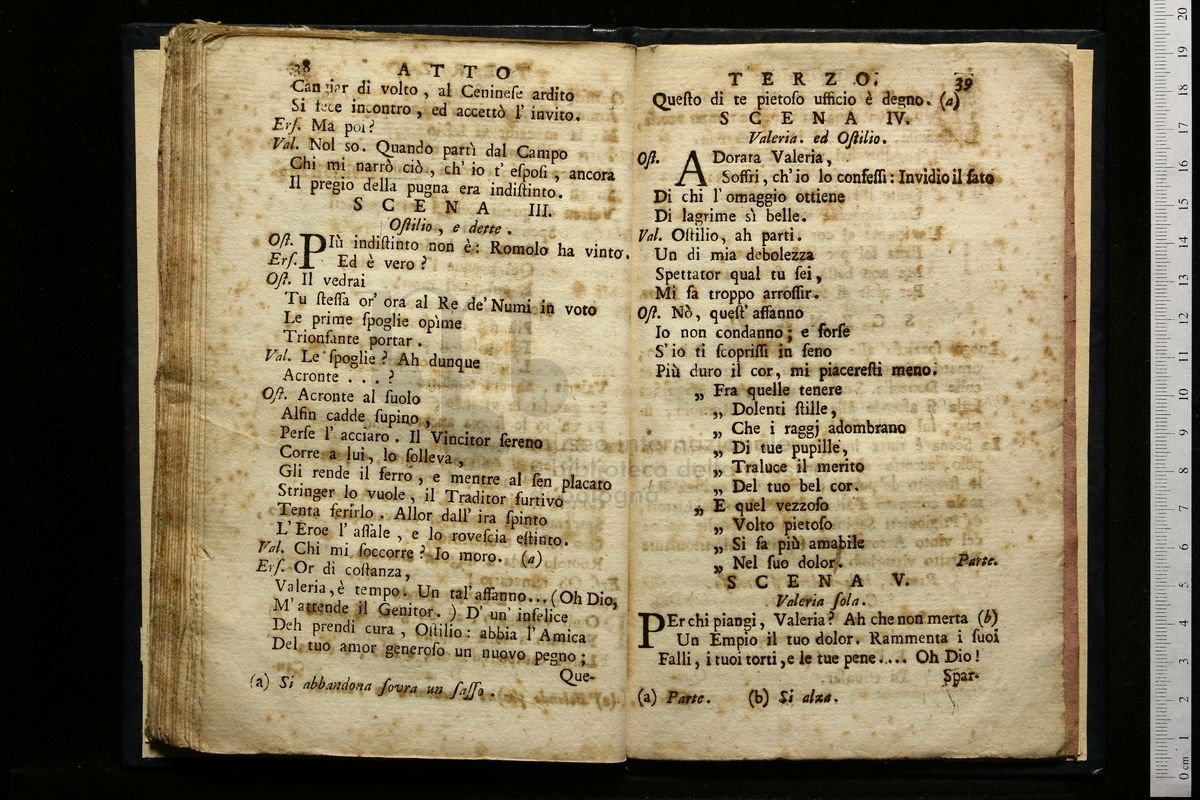 38 ATTO
Cangiar di volto, al Ceninese ardito
Si fece incontro, ed accettò l' invito.
Ers. Ma poi?
Val. Nol so. Quando partì dal Campo
Chi mi narrò ciò, ch' io t' esposi, ancora
Il pregio della pugna era indistinto.
SCENA III.
Ostilio, e dette.
Ost. PIù indistinto non è: Romolo ha vinto.
Ers. Ed è vero?
Ost. Il vedrai
Tu stessa or' ora al Re de' Numi in voto
Le prime spoglie opìme
Trionfante portar.
Val. Le spoglie? Ah dunque
Acronte . . . ?
Ost. Acronte al suolo
Alfin cadde supino,
Perse l' acciaro. Il Vincitor sereno
Corre a lui, lo solleva,
Gli rende il ferro, e mentre al sen placato
Stringer lo vuole, il Traditor furtivo
Tenta ferirlo. Allor dall' ira spinto
L' Eroe l' assale, e lo rovescia estinto.
Val. Chi mi soccorre? Io moro. (a)
Ers. Or di costanza,
Valeria, è tempo. Un tal' affanno... (Oh Dio,
M' attende il Genitor.) D' un' infelice
Deh prendi cura, Ostilio: abbia l' Amica
Del tuo amor generoso un nuovo pegno;
Que-
(a) Si abbandona sovra un sasso.
TERZO. 39
Questo di te pietoso ufficio è degno. (a)
SCENA IV.
Valeria. ed Ostilio.
Ost. ADorata Valeria,
Soffri, ch' io lo confessi: Invidio il fato
Di chi l' omaggio ottiene
Di lagrime sì belle.
Val. Ostilio, ah parti.
Un di mia debolezza
Spettator qual tu sei,
Mi fa troppo arrossir.
Ost. Nò, quest' affanno
Io non condanno; e forse
S' io ti scoprissi in seno
Più duro il cor, mi piaceresti meno.
„ Fra quelle tenere
„ Dolenti stille,
„ Che i raggj adombrano
„ Di tue pupille,
„ Traluce il merito
„ Del tuo bel cor.
„ E quel vezzoso
„ Volto pietoso
„ Si fa più amabile
„ Nel suo dolor. Parte.
SCENA V.
Valeria sola.
PEr chi piangi, Valeria? Ah che non merta (b)
Un Empio il tuo dolor. Rammenta i suoi
Falli, i tuoi torti, e le tue pene.... Oh Dio!
Spar-
(a) Parte. (b) Si alza.
museo internazionale
biblioteca della
bologna
0 cm 1 2 3 4 5 6 7 8 9 10 11 12 13 14 15 16 17 18 19 20